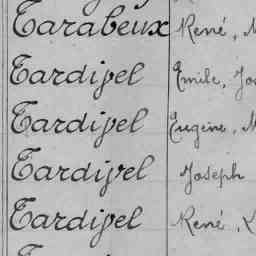 Tarabeux René, M
Tardivel Emile, Jos
Tardivel Eugène, M
Tardivel Joseph
Tardivel René,